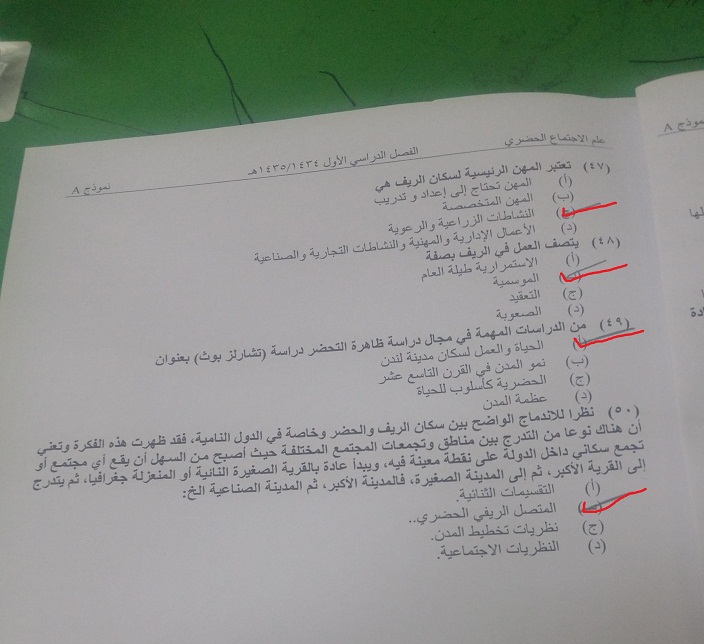 علم الاجتماع الحضري
الفصل الدراسي الأول ١٤٣٥/١٤٣٤هـ
نموذج A
(٤٧) تعتبر المهن الرئيسية لسكان الريف هي
(أ) المهن تحتاج إلى إعداد و تدريب
(ب) المهن المتخصصة
(ج) النشاطات الزراعية والرعوية
(د) الأعمال الإدارية والمهنية والنشاطات التجارية والصناعية
(٤٨) يتصف العمل في الريف بصفة
(أ) الاستمرارية طيلة العام
(ب) الموسمية
(ج) التعقيد
(د) الصعوبة
(٤٩) من الدراسات المهمة في مجال دراسة ظاهرة التحضر دراسة (تشارلز بوث) بعنوان
(أ) الحياة والعمل لسكان مدينة لندن
(ب) نمو المدن في القرن التاسع عشر
(ج) الحضرية كأسلوب للحياة
(د) عظمة المدن
(٥٠) نظرا للاندماج الواضح بين سكان الريف والحضر وخاصة في الدول النامية، فقد ظهرت هذه الفكرة وتعني
أن هناك نوعا من التدرج بين مناطق وتجمعات المجتمع المختلفة حيث أصبح من السهل أن يقع أي مجتمع أو
تجمع سكاني داخل الدولة على نقطة معينة فيه، ويبدأ عادة بالقرية الصغيرة النائية أو المنعزلة جغرافيا، ثم يتدرج
إلى القرية الأكبر، ثم إلى المدينة الصغيرة، فالمدينة الأكبر، ثم المدينة الصناعية الخ:
(أ) التقسيمات الثنائية.
(ب) المتصل الريفي الحضري..
(ج) نظريات تخطيط المدن.
(د) النظريات الاجتماعية.
نموذج A